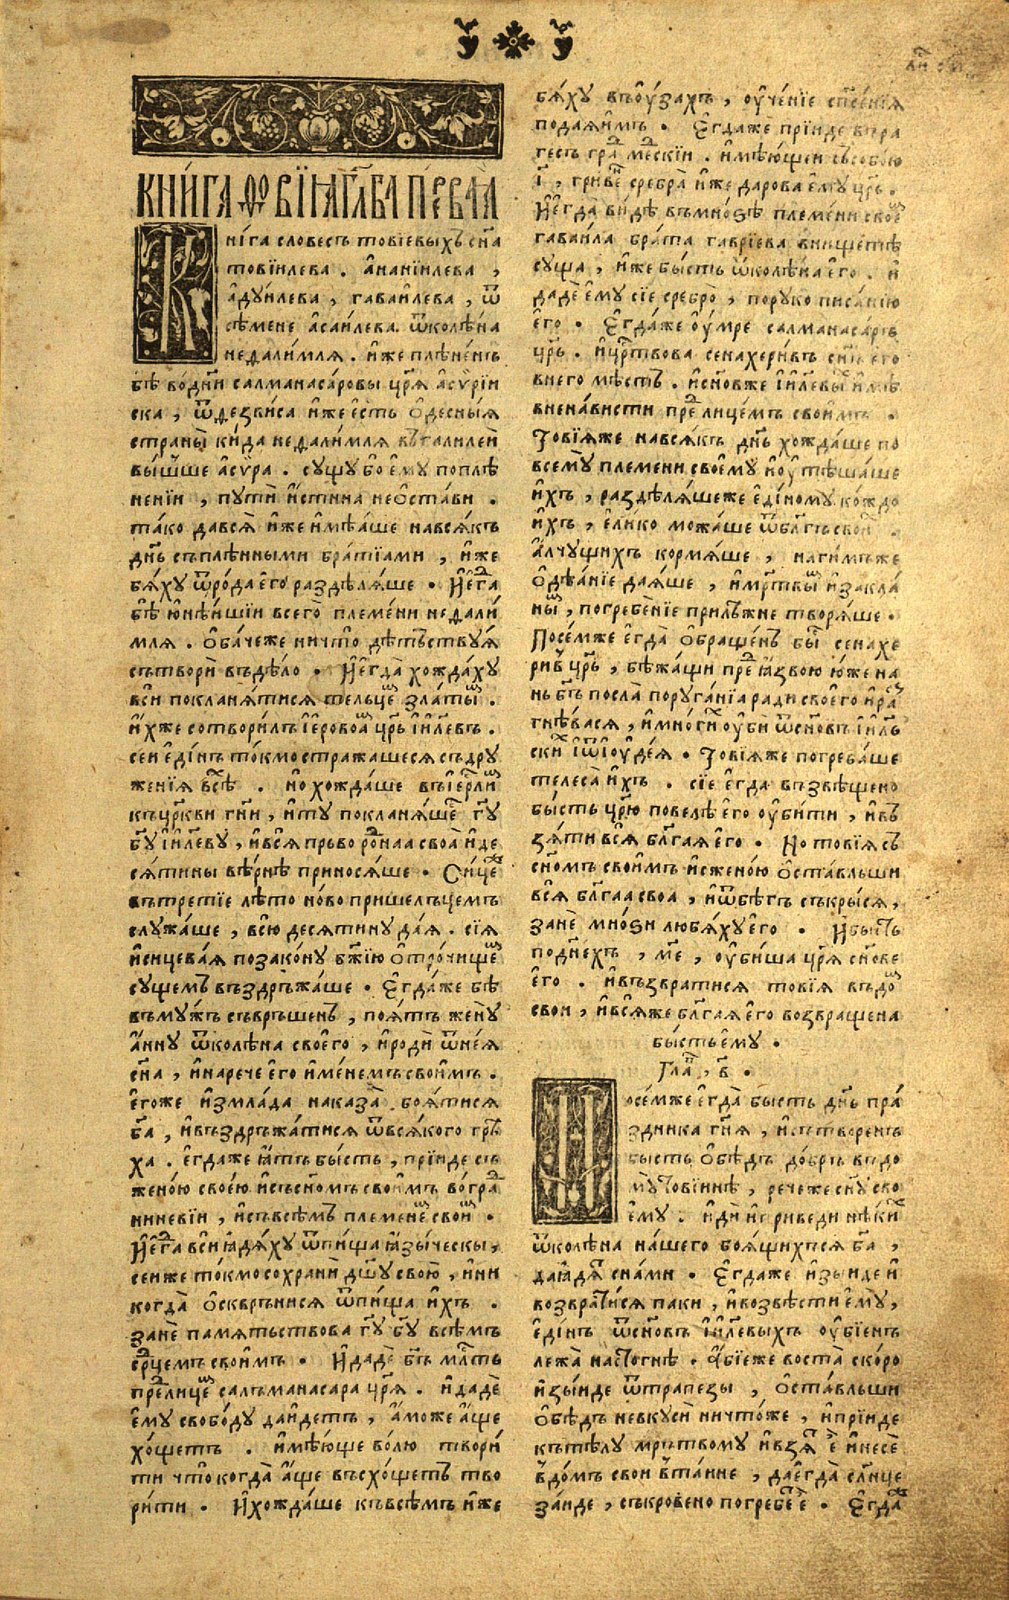 КНИ́ГА ТОВІ́Ѧ ГЛАВА̀ ПЕ́РВАѦ
Кни́га словесъ товїевыхъ сн҃а
товїилева . а҆нанїилева ,
а҆дуи́лева , гаваи́лева , ѿ
сѣ́мене а҆саи́лева . ѿколѣ́на
недали́мля . и҆же плѣне́нъ
бѣ̀ во́дни салманаса́ровы цр҃я а҆сѷрїи
ска , ѿдезви́са и҆же є҆сть ѻ҆десныѧ
страны̀ ки́да недали́мля въгалиле́и
вы́шше а҆сѷра . сущу бо є҆му поплѣ
не́нїи , пути̑ и҆́стинна неѡ҆ста́ви .
та́ко давсѧ̀ и҆же и҆мѣ́ѧше навсѧ́къ
дн҃ь съплѣ́нными бра́тїами , и҆же
бѧ́ху ѿро́да є҆го̀ раздѣлѧ́ше . И҆є҆гда̀
бѣ̀ ю҆нѣ́ишїи всего̀ племе́ни недали́
мля . ѻ҆ба́чеже ничто̀ дѣ́тьствуѧ
сътвори̑ въдѣ́ло . И҆є҆гда̀ хожда́ху
вси̑ покланѧ́тисѧ тельце́мъ златы́мъ .
и҆́хже сотвори́лъ і҆еровоа́мъ цр҃ь і҆и҃левъ .
сеи є҆ди́нъ то́кмо стражашесѧ съдру
же́нїѧ всѣ́хъ . но хожда́ше въі҆ерⷭ҇ли́мъ
къцр҃кви гн҃и , и҆ту покланѧ́шесѧ гу҃
бу҃ і҆и҃леву , и҆всѧ̀ прьворо́днаа своа̀ и҆де
сѧти́ны вѣ́рнѣ приноси́ше . Си́цеже
вътре́тїе лѣ́то но́во прише́льцемъ
служа́ше , всю̀ десѧти́ну даѧ̀ . сїѧ̀
и҆си́цеваѧ позако́ну бж҃їю ѻ҆́трочищемъ
су́щемъ въздръжа́ше . Є҆гда́же бѣ̀
въму́жъ съврьше́нъ , поѧ́тъ жену̀
а҆́нну ѿколѣ́на своего̀ , и҆роди̑ ѿнеѧ̀
сн҃а , и҆нарече є҆го̀ и҆́менемъ свои́мъ .
є҆гоже и҆змла́да наказа̀ боѧ́тисѧ
бг҃а , и҆въздръжа́тисѧ ѿвсѧ́кого грѣ
ха̀ . є҆гдаже ꙗ҆́тъ бы́сть , прїи́де съ
жено́ю свое́ю и҆съсн҃омъ свои́мъ во гра́дъ
нине́вїи , и҆съвсѣ́мъ пле́менемъ свои́мъ .
И҆є҆гда̀ вси̑ ꙗ҆дѧ́ху ѿпи́ща ꙗ҆зы́ческы ,
сеи́же то́кмо сохрани̑ дш҃у свою̀ , и҆ни
когда̀ ѻ҆скврьни́сѧ ѿпи́ща и҆́хъ .
занѐ памѧтьствова гу҃ бу҃ всѣ́мъ
ср҃дцемъ свои́мъ . И҆дадѐ бг҃ъ мл҃сть
предлице́мъ салъманаса́ра цр҃ѧ . и҆дадѐ
є҆му̀ свобо́ду даи́детъ , а҆може а҆́ще
хо́щетъ . и҆мѣ́ѧше во́лю твори́
ти что когда̀ а҆́ще въсхо́щетъ тво
ри́ти . И҆хожда́ше къвсѣ́мъ и҆же
бѧ́ху въѹ҆́захъ , ѹ҆че́нїе спⷭ҇нїѧ
подаѧ́имъ . Є҆гда́же прїи́де въра
гесъ гра́дъ ме́дскїи . и҆мѣ́ющеи съсобо́ю
і҃ , гри́венъ сребра̀ и҆́же дарова є҆му̀ цр҃ь .
И҆є҆гда̀ ви́дѣ въмно́зѣ пле́мени свое́мъ
гаваи́ла бра́та гаврі́ева внищетѣ̀
су́ща , и҆́же бы́сть ѿколѣ́на є҆го̀ . и҆
дадѐ є҆му̀ сїѐ сребро̀ , поруко писа́нїю
є҆го̀ . Є҆гда́же ѹ҆мре салманаса́ръ
цр҃ь . и҆црⷭ҇твова сенахери́въ сн҃ъ є҆го̀
внего мѣ́сто . и҆сновже і҆и҃левы и҆мѣ̀
вненависти предлице́мъ свои́мъ .
Товїѧ́же навсѧ́къ дн҃ь хожда́ше по
всему̀ племени своему̀ и҆ѹ҆тѣша́ше
и҆́хъ , раздѣлѧ́шеже є҆ди́ному ко́ждо
и҆́хъ , є҆ли́ко можа́ше ѿблг҃ъ свои́хъ .
а҆́лчущихъ кормѧ́ше , наги́мъже
ѻ҆дѣѧ́нїе даѧ́ше , и҆мр҃твымъ и҆закла́
нымъ , погребе́нїе прилѣ́жне творѧ́ше .
Посе́мже є҆гда̀ ѻ҆браще́нъ бы́сть сенахе
ри́въ цр҃ь , бѣжа́щи предъ ꙗ҆́звою ю҆́же на
нь бг҃ъ посла̀ поруга́нїа ради своего̀ и҆ра́з
гнѣ́васѧ , и҆мно́гихъ ѹ҆би̑ ѿсн҃овъ і҆и҃ль
скихъ і҆ѿі҆ѹде́ѧ . Товїѧ́же погреба́ше
телеса̀ и҆́хъ . сїѐ є҆гда̀ възвѣще́но
бы́сть цр҃ю повелѣ̀ є҆го̀ ѹ҆би́ти , и҆въ
зѧ́ти всѧ̀ блг҃аѧ є҆го̀ . Но товїѧ съ
сн҃омъ свои́мъ и҆сжено́ю ѻ҆ста́вльши
всѧ̀ блг҃аа своа , и҆ѿбѣ́гъ съкры́сѧ ,
занѐ мно́зи любѧ́ху є҆го̀ . И҆бы́сть
поднехъ , м҃е , ѹ҆би́ша цр҃ѧ сн҃ове
є҆го̀ . и҆възврати́сѧ товїѧ въдо́мъ
свои , и҆всѧ́же блг҃аѧ є҆го̀ возвраще́на
бы́сть є҆му̀ .
Глава̀ , в҃ .
Посе́мже є҆гда̀ бы́сть дн҃ь пра́
здника гн҃ѧ , и҆сътворе́нъ
бы́сть ѻ҆бѣ́дъ до́бръ въдо
му̀ Товїинѣ , рече́же сн҃у сво
є҆му̀ . и҆ди̑ и҆приведи нѣ́кихъ
ѿколѣ́на на́шего боѧ́щихсѧ бг҃а ,
даꙗ҆дѧ́тъ сна́ми . Є҆гдаже и҆зы́иде и҆
возврати́сѧ паки , и҆возвѣсти є҆му̀ ,
є҆ди́нъ ѿсн҃овъ і҆и҃левыхъ ѹ҆бїе́нъ
лежа̀ насто́гнѣ . а҆́бїеже воста̀ ско́ро
и҆зы́иде ѿтрапезы , ѻ҆ста́вльши
ѻ҆бѣ́дъ невкуси̑ ничто́же , и҆прїи́де
къ тѣ́лу мр҃твому и҆взѧ́тъ є҆̀ и҆несѐ
въдо́мъ свои въта́ине , дае҆гда̀ слн҃це
за́иде , съкрове́но погребе́тъ є҆̀ . Є҆гда́же